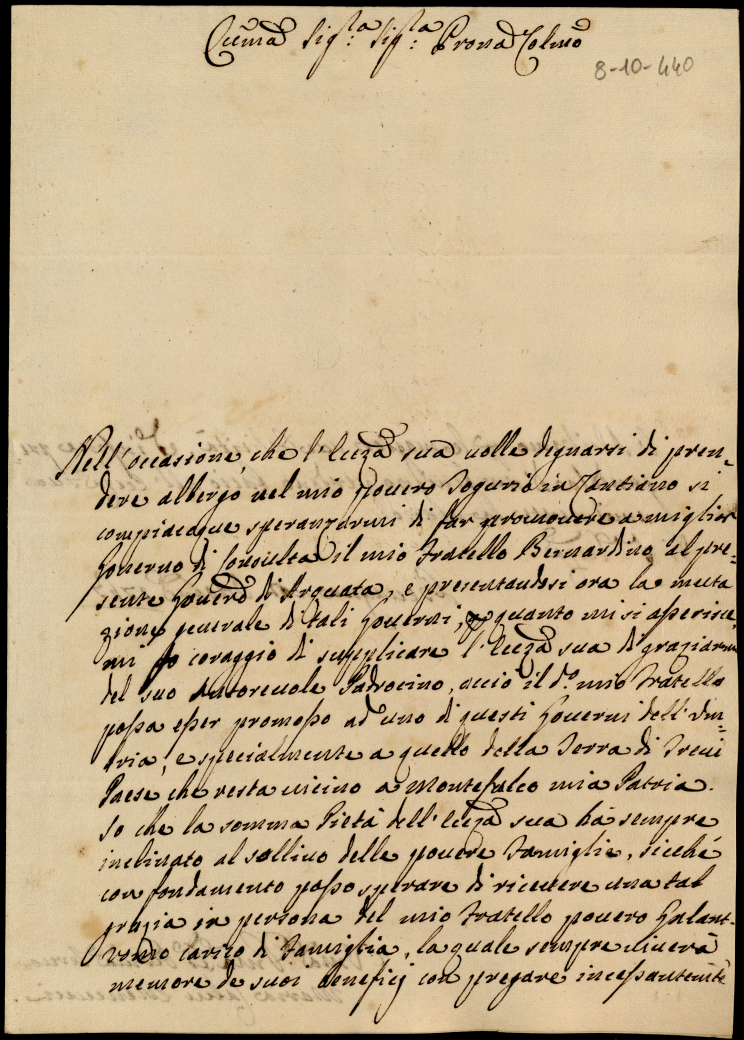 Eccma Sigra Sigra Prona Colma
8-10-440
Nell'occasione, che l'Eccza sua volle degnarsi di pren=
dere albergo nel mio povero Togurio in Cantiano si
compiacque speranzarmi di far promovere a miglior
Governo di Consulta il mio Fratello Bernardino, al pre=
sente Goverre di Arquata, e presentandosi ora la muta
zione generale di tali Governi, per quanto mi si asserisce,
mi fo coraggio di supplicare l'Eccza sua di graziarmi
del suo Autorevole Padrocinio, acciò il do. mio Fratello
possa esser promosso ad uno di questi Governi dell'Um=
bria, e specialmente a quello della Terra di Trevi
Paese che resta vicino a Montefalco mia Patria.
So che la somma Pietà dell'Eccza sua hà sempre
inclinato al sollivo delle povere Famiglie, sicché
con fondamento posso sperare di ricevere una tal
grazia in persona del mio Fratello povero Galant-
uomo carico di Famiglia, la quale sempre viverà
memore de suoi beneficj con pregare incessantemte